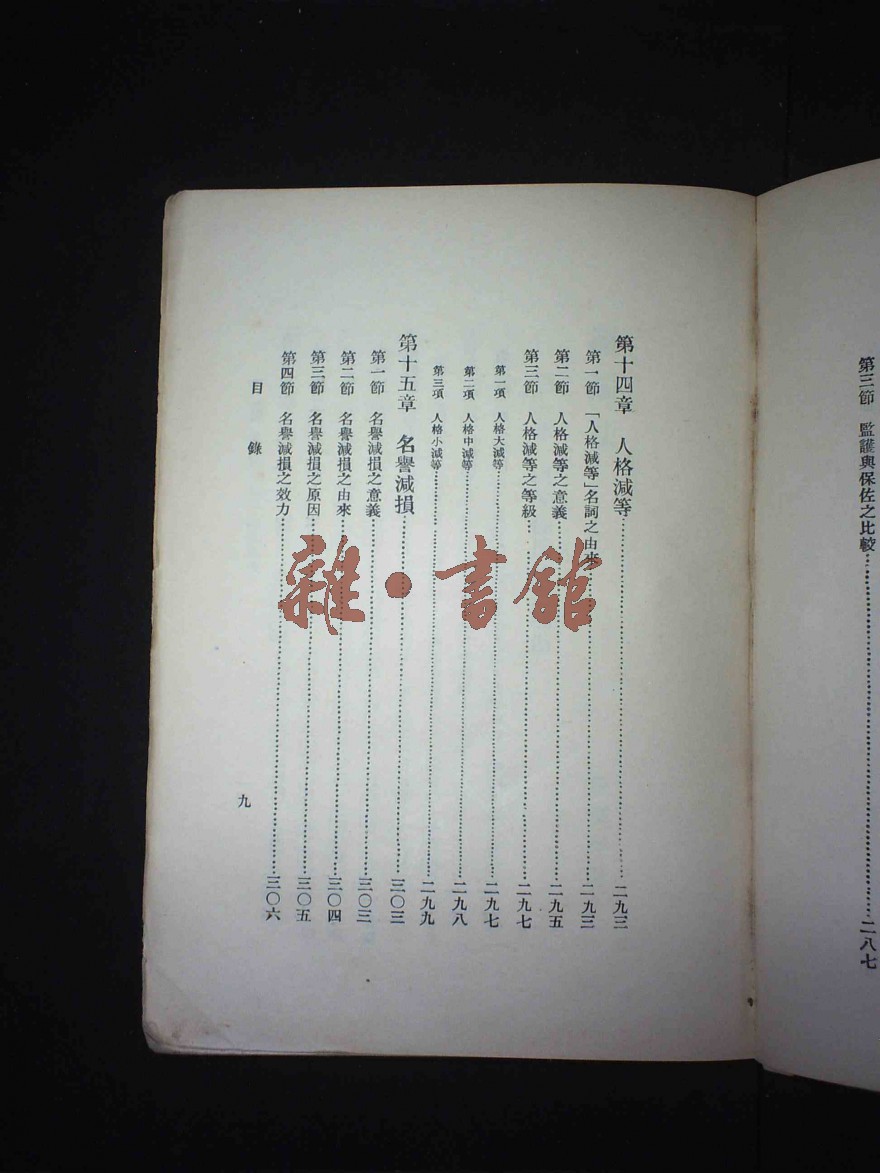 第三節 監護與保佐之比較……二八七
第十四章 人格減等……二九三
第一節 「人格減等」名詞之由來……二九三
第二節 人格減等之意義……二九五
第三節 人格減等之等級……二九七
第一項 人格大減等……二九七
第二項 人格中減等……二九八
第三項 人格小減等……二九九
第十五章 名譽減損……三〇三
第一節 名譽減損之意義……三〇三
第二節 名譽減損之由來……三〇四
第三節 名譽減損之原因……三〇五
第四節 名譽減損之效力……三〇六
目錄
九
雜·書館